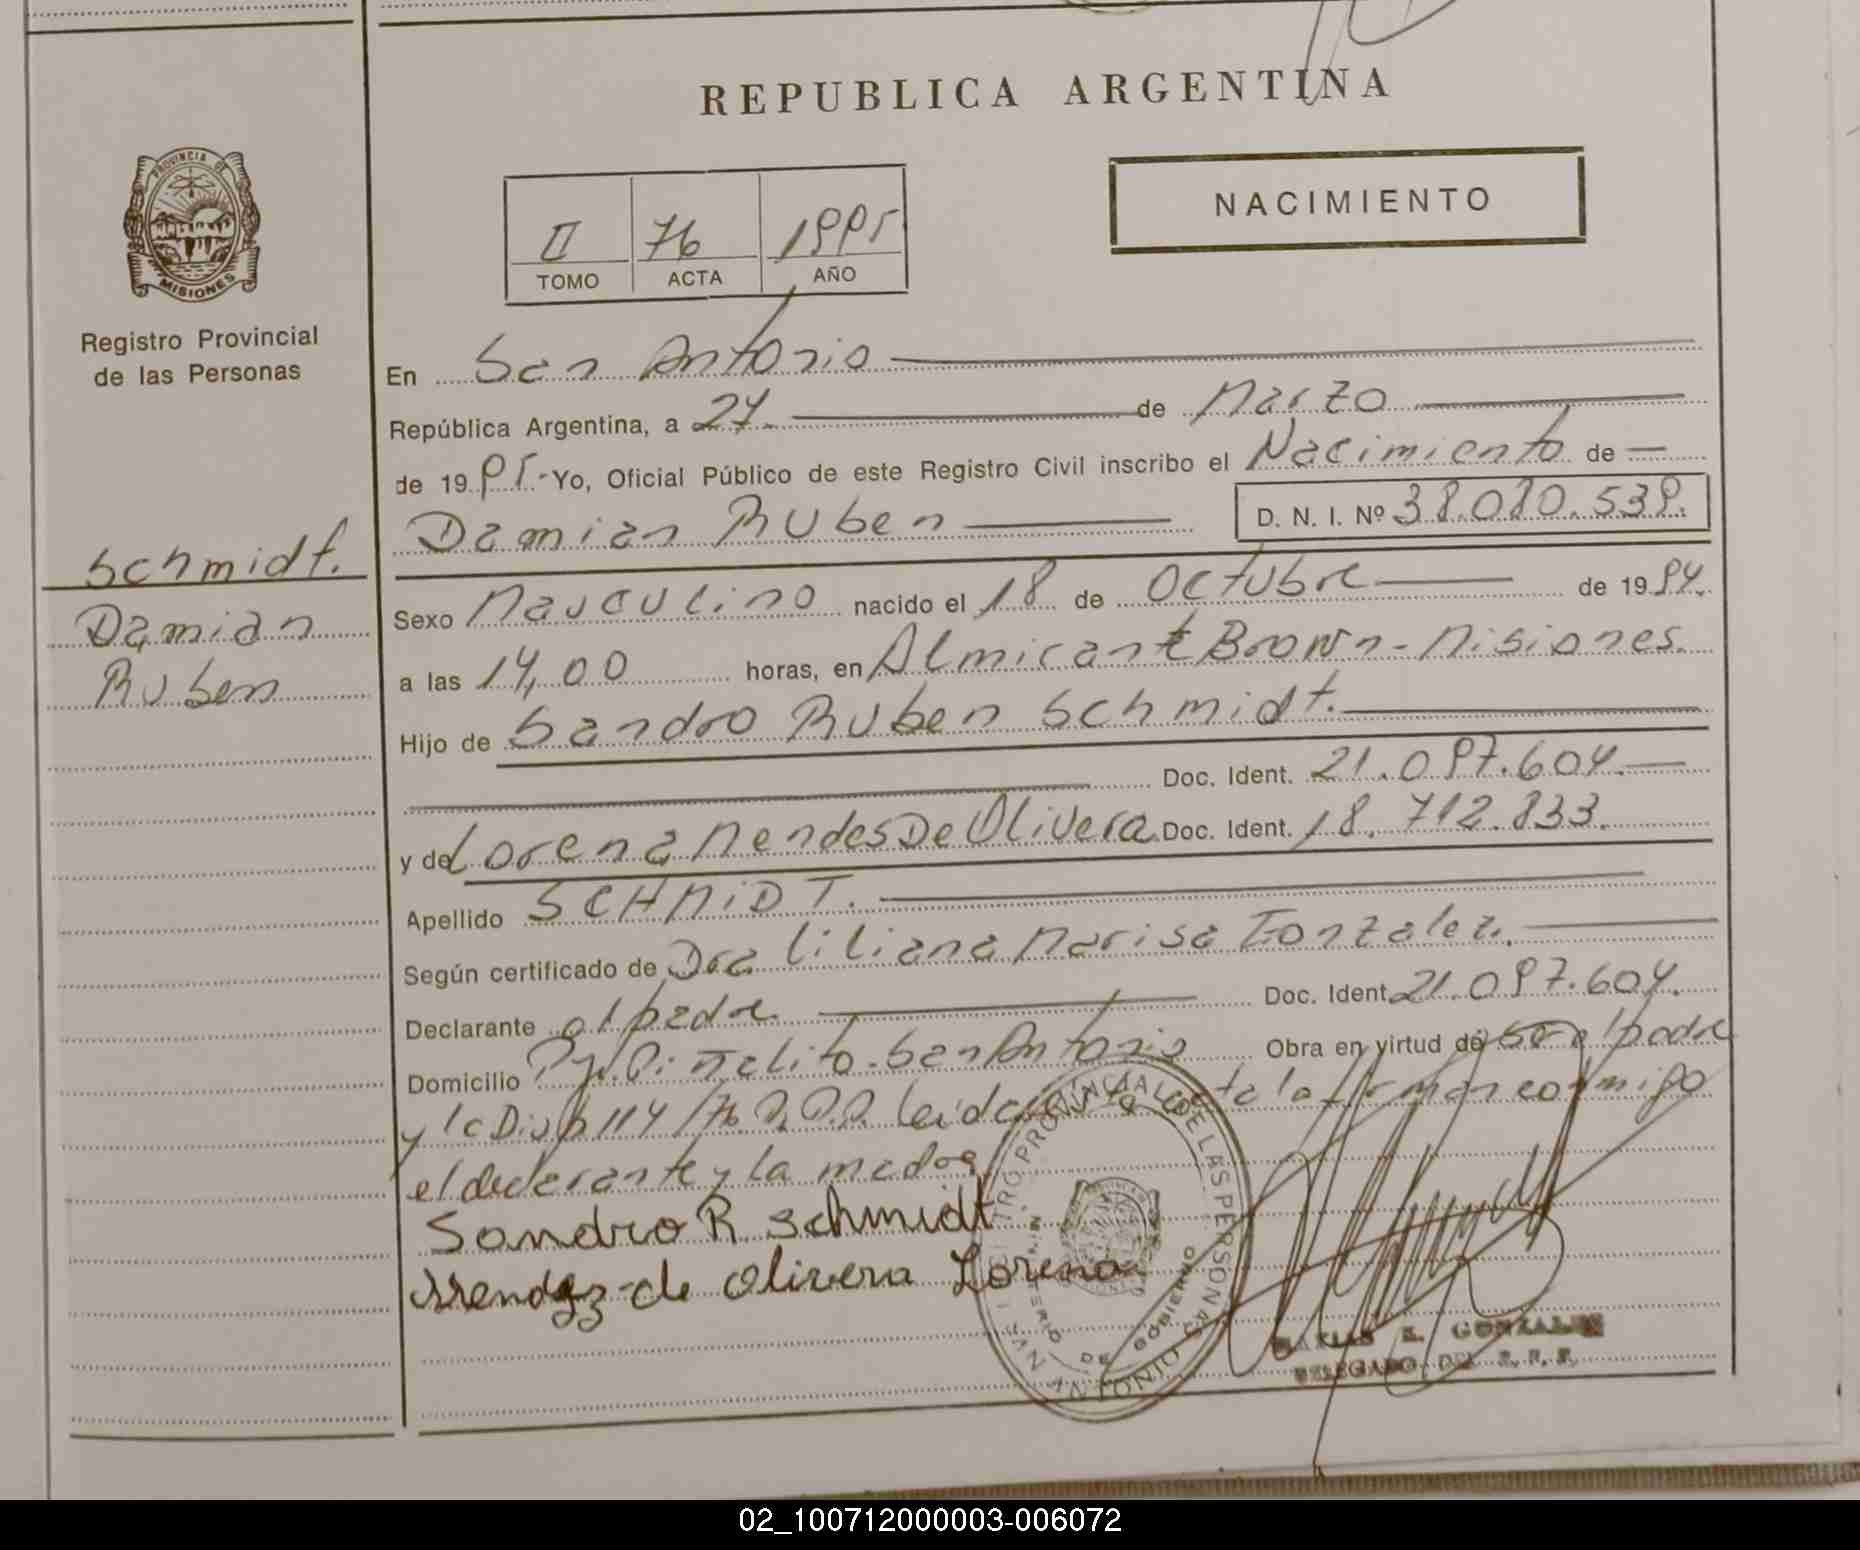 REPUBLICA ARGENTINA
PROVINCIA DE
MISIONES
Registro Provincial
de las Personas
NACIMIENTO
II 76 1995
TOMO ACTA AÑO
En San Antonio
República Argentina, a 27 de Marzo
de 1995.- Yo, Oficial Público de este Registro Civil inscribo el Nacimiento de
Damian Ruben D. N. I. Nº 38.080.539.
Schmidt.
Damian
Ruben
Sexo Masculino nacido el 18 de Octubre de 1994.
a las 14,00 horas, en Almirante Brown - Misiones.
Hijo de Sandro Ruben Schmidt.
Doc. Ident. 21.097.604.
y de Lorena Mendes De Olivera Doc. Ident. 18.712.833.
Apellido SCHMIDT.
Según certificado de Dra Liliana Marisa Gonzalez.
Declarante el padre Doc. Ident. 21.097.604.
Domicilio San Antonio Obra en virtud de el padre
y la Disp 114/76 leida la firman conmigo
el declarante y la madre
Sandro R Schmidt
Mendez de Olivera Lorena
REGISTRO PROVINCIAL DE LAS PERSONAS
MINISTERIO DE GOBIERNO
SAN ANTONIO
E. GONZALEZ
DELEGADO DEL R. P. P.
02_100712000003-006072